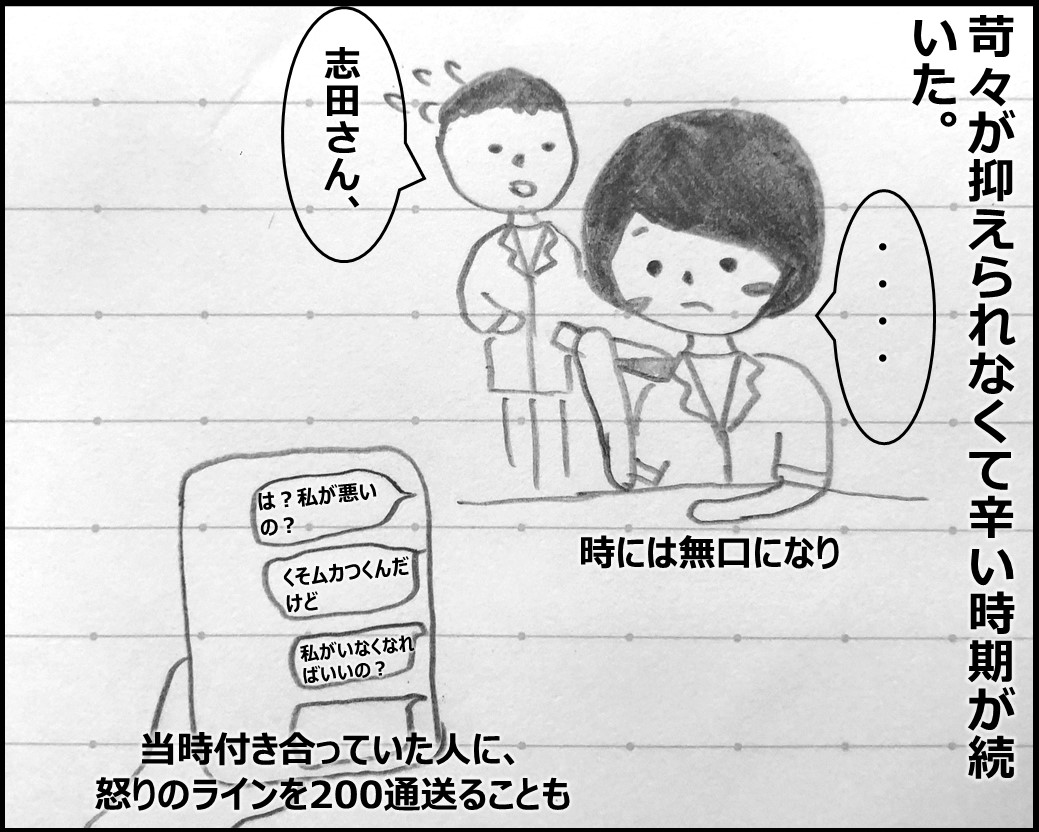 苛々が抑えられなくて辛い時期が続
いた。
・・・・
志田さん、
時には無口になり
は？私が悪い
の？
くそムカつくんだ
けど
私がいなくなれ
ばいいの？
当時付き合っていた人に、
怒りのラインを200通送ることも